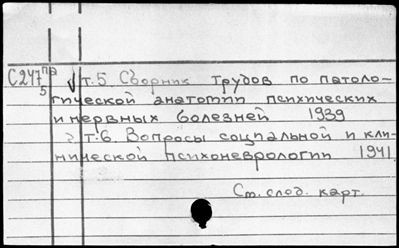 С247пв ✓ т.5 Сборник трудов по патоло-
5 гической анатомии психических
и нервных болезней 1939
? т.6. Вопросы социальной и кли-
нической психоневрологии 1941.
См. след. карт.